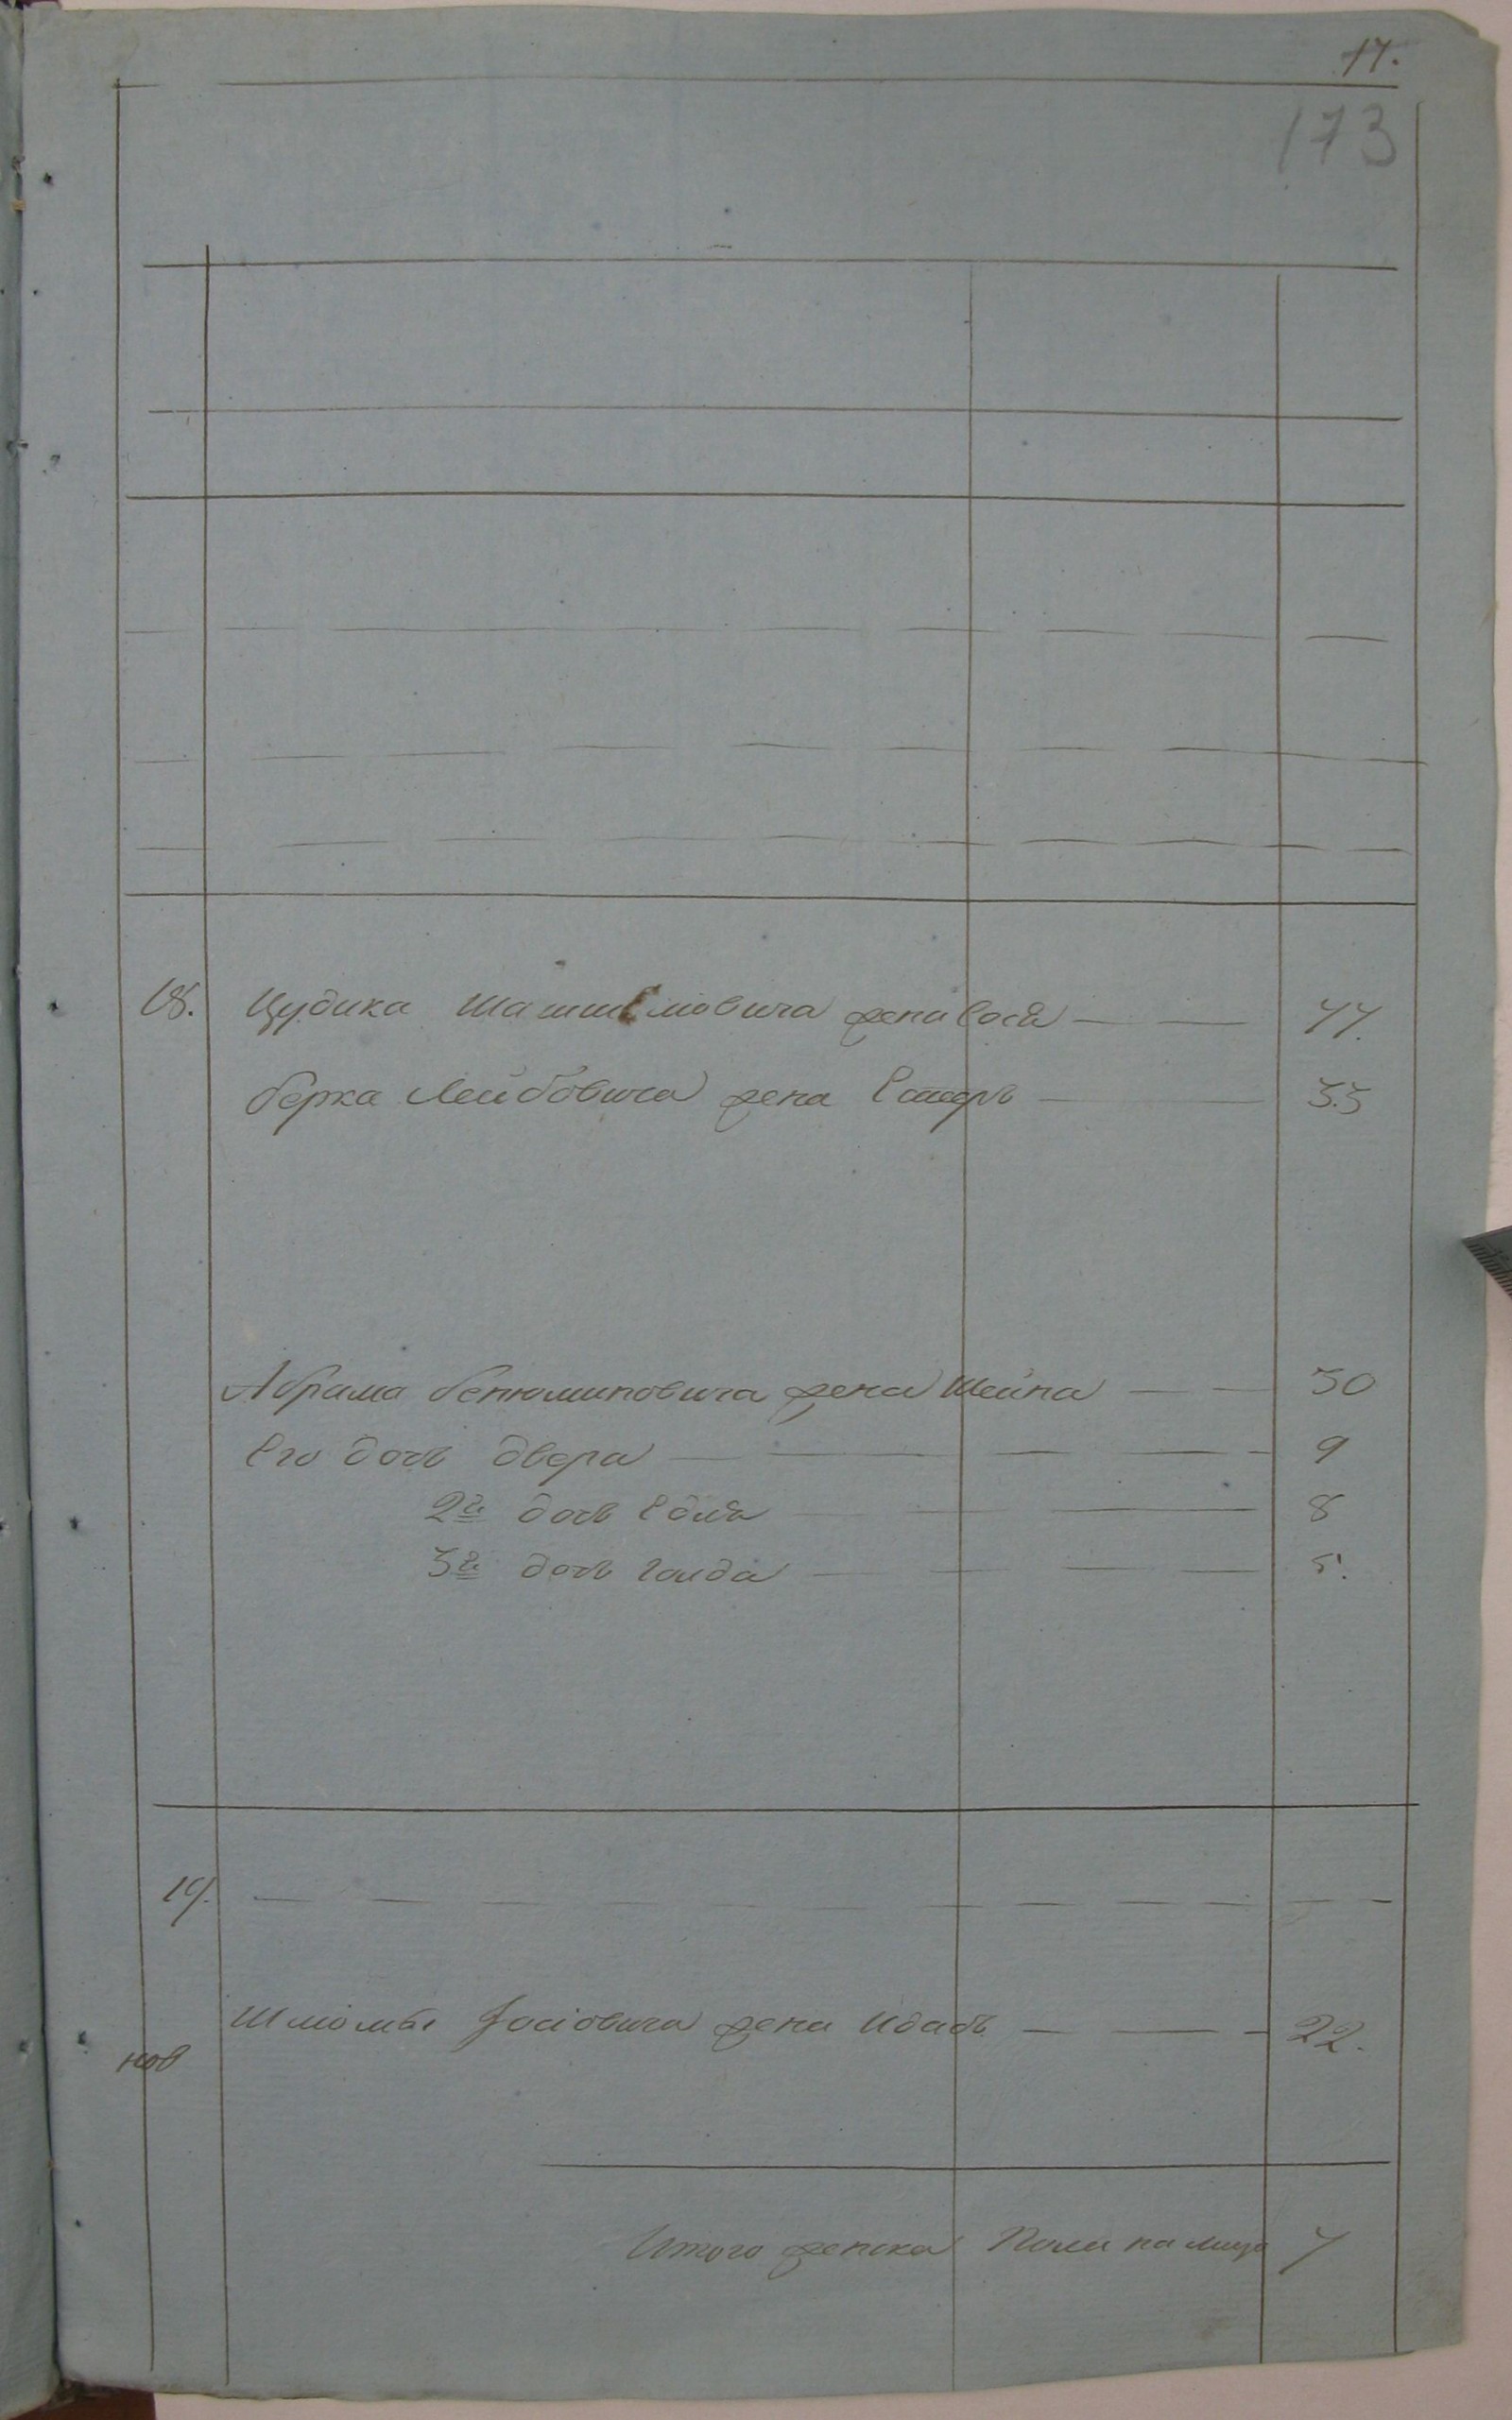 17.
173
18. Цудика жена Сося 44.
Берка Лейбовича жена Естеръ 33
Абрама Бенюминовича жена Шейна 30
Его дочь Двера 9
2я дочь Едля 8
3я дочь Голда 5.
19.
Шломы Іосіовича жена 22.
нов
Итого женска Пола на лицо 7